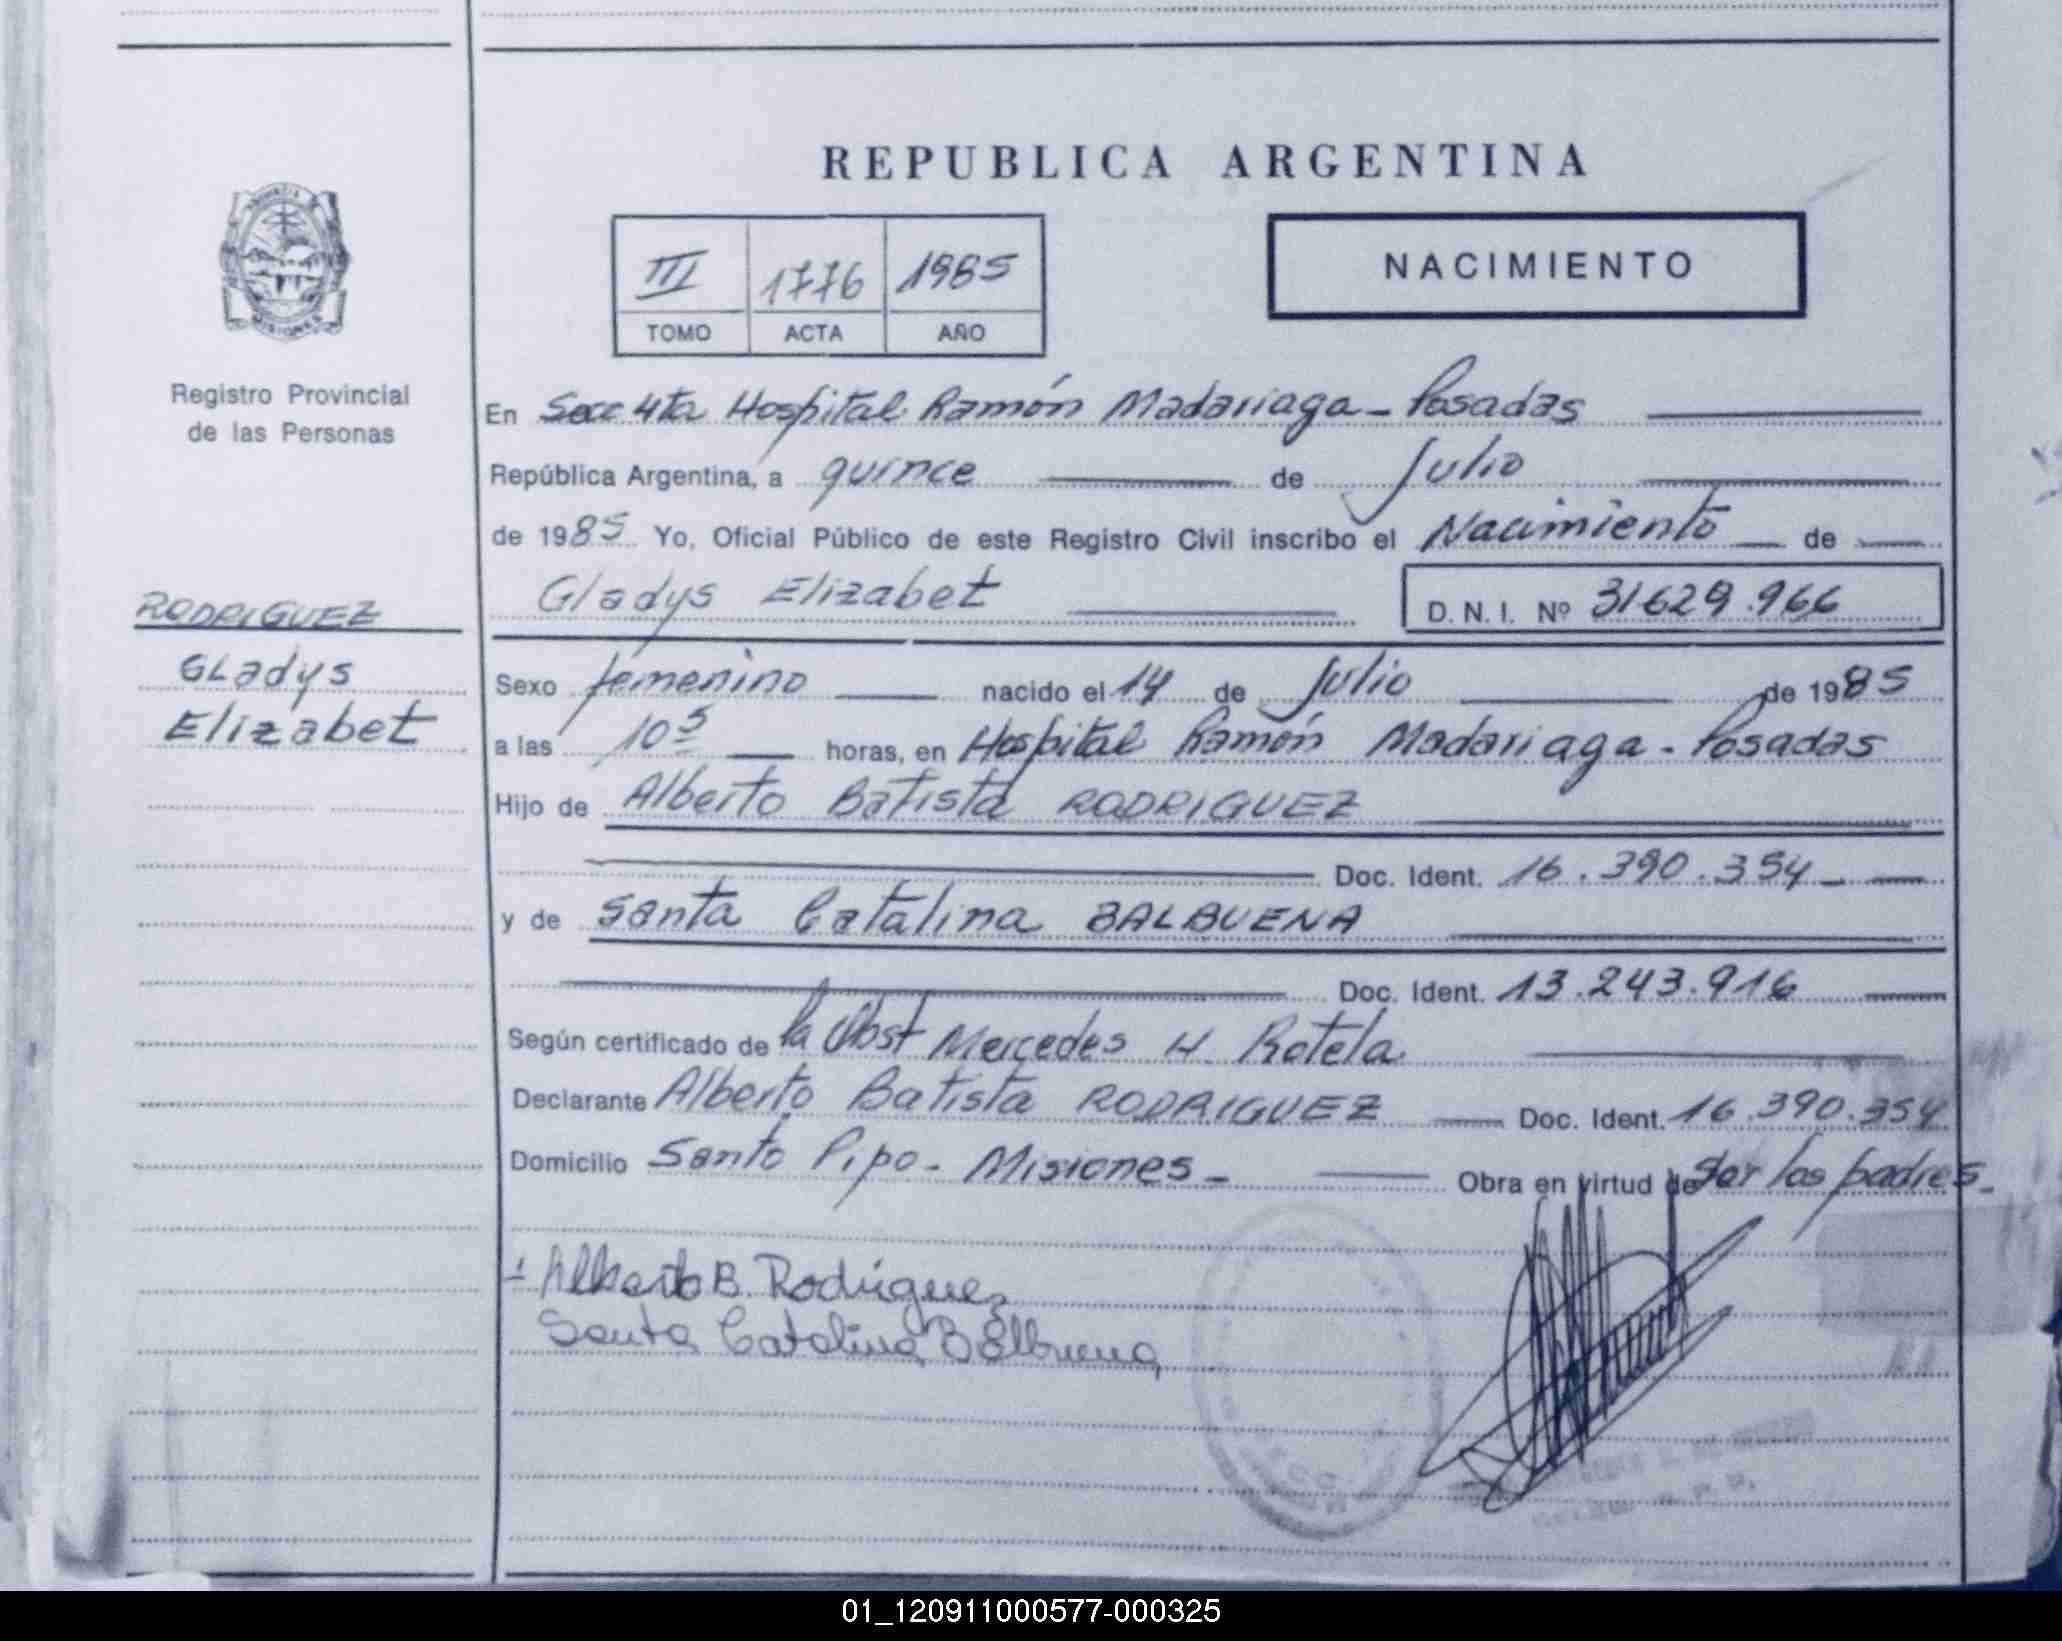 REPUBLICA ARGENTINA
III 1776 1985
TOMO ACTA AÑO
NACIMIENTO
MISIONES
Registro Provincial
de las Personas
En Secc 4ta Hospital Ramón Madariaga - Posadas
República Argentina, a quince de Julio
de 1985 Yo, Oficial Público de este Registro Civil inscribo el Nacimiento de
Gladys Elizabet D. N. I. Nº 31629.966
RODRIGUEZ
Gladys
Elizabet
Sexo femenino nacido el 14 de Julio de 1985
a las 10 5 horas, en Hospital Ramón Madariaga - Posadas
Hijo de Alberto Batista RODRIGUEZ
Doc. Ident. 16.390.354
y de Santa Catalina BALBUENA
Doc. Ident. 13.243.916
Según certificado de la Obst Mercedes H. Rotela
Declarante Alberto Batista RODRIGUEZ Doc. Ident. 16.390.354
Domicilio Santo Pipo - Misiones - Obra en virtud de Ser los padres.
Alberto B. Rodriguez
Santa Catalina Balbuena
01_120911000577-000325